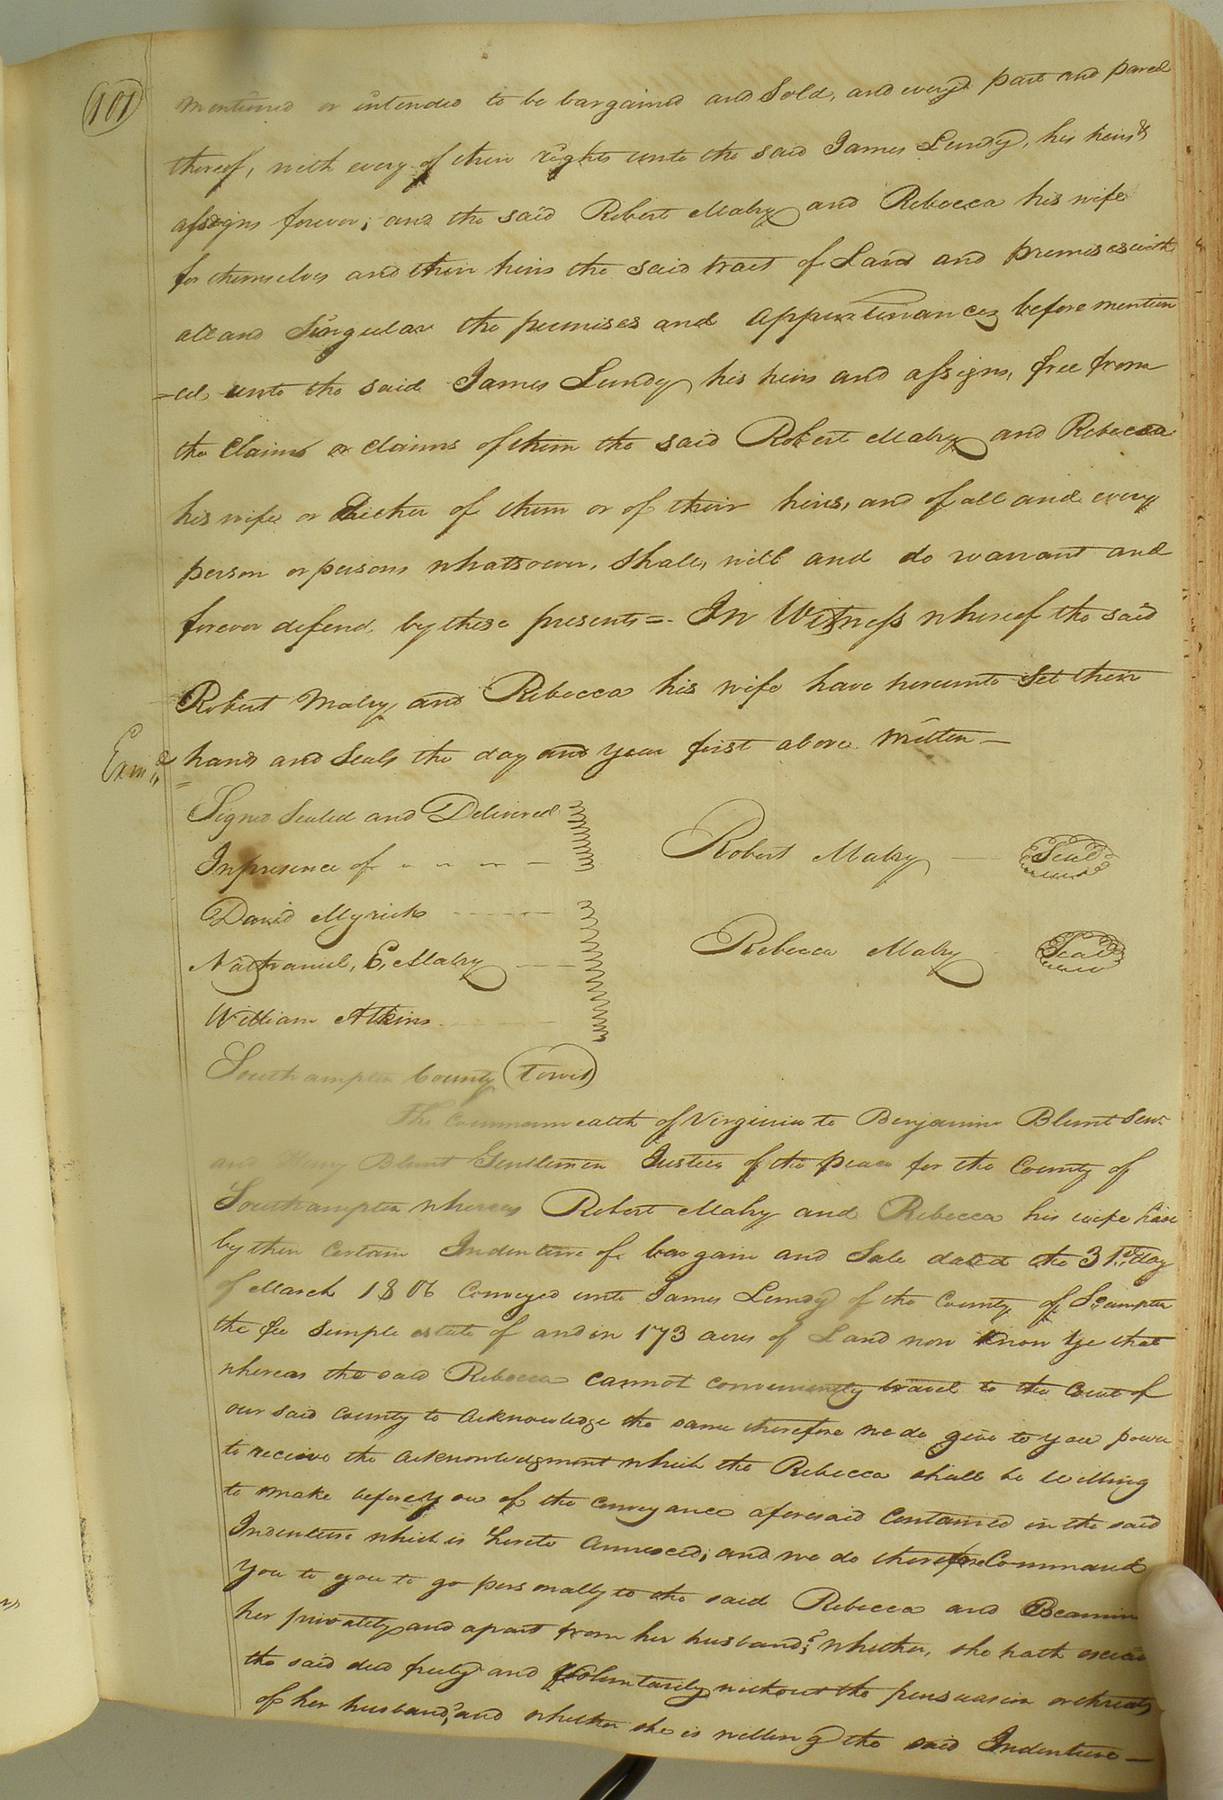 101
mentioned or intended to be bargained and Sold, and every part and parcel
thereof, with every of their rights unto the said James Lundy, his heirs &
assigns forever; and the said Robert Malry and Rebecca his wife
for themselves and their heirs the said tract of Land and premises with
all and Singular the premises and appurtinances before mention
=ed, unto the said James Lundy his heirs and assigns, free from
the Claim or claims of them the said Robert Malry and Rebecca
his wife or Either of them or of their heirs, and of all and every
person or persons whatsoever, Shall, will and do warrant and
forever defend, by these presents =. In Witness whereof the said
Robert Malry and Rebecca his wife have hereunto Set their
Exmd
hands and Seals the day and year first above written —
Signed Sealed and Delivered
In presence of
Robert Malry Seal
David Myrick
Nathaniel, E, Malry
Rebecca Malry Seal
William Atkins
Southampton County Towit
The Commonwealth of Virginia to Benjamin Blunt Senr.
and Henry Blunt Gentlemen Justices of the peace for the County of
Southampton whereas Robert Malry and Rebecca his wife have
by their Certain Indenture of bargain and Sale dated the 31st day
of March 1806 Conveyed unto James Lundy of the County of So.ampton
the fee Simple estate of and in 173 acres of Land now Know Ye that
whereas the said Rebecca cannot conveniently travel to the Court of
our said County to Acknowledge the same therefore we do give to you power
to receive the Acknowledgment which the Rebecca shall be willing
to make before you of the Conveyance aforesaid Contained in the said
Indenture which is hereto Annexed; and we do therefore Command
you to you to go personally to the said Rebecca and
her privately and apart from her husband; whether, she hath
the said deed freely and Voluntarily without the persuasion or threats
of her husband, and whether she is willing the said Indenture —